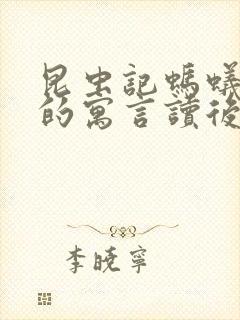 昆虫記螞蟻
的寓言讀後
李曉寧